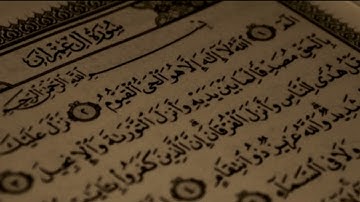 سُورَةُ آلِ عِمْرَان
بِسْمِ ٱللَّهِ ٱلرَّحْمَٰنِ ٱلرَّحِيمِ
الٓمٓ ١ ٱللَّهُ لَآ إِلَٰهَ إِلَّا هُوَ ٱلْحَىُّ ٱلْقَيُّومُ ٢ نَزَّلَ عَلَيْكَ
بِٱلْحَقِّ مُصَدِّقًا لِّمَا بَيْنَ يَدَيْهِ وَأَنزَلَ ٱلتَّوْرَىٰةَ وَٱلْإِنجِيلَ
هُدًى لِّلنَّاسِ وَأَنزَلَ ٱلْفُرْقَانَ إِنَّ ٱلَّذِينَ كَفَرُوا۟ بِـَٔايَٰتِ
شَدِيدٌ وَٱللَّهُ عَزِيزٌ ذُو ٱنتِقَامٍ ٤
وَلَا فِى ٱلسَّمَآءِ